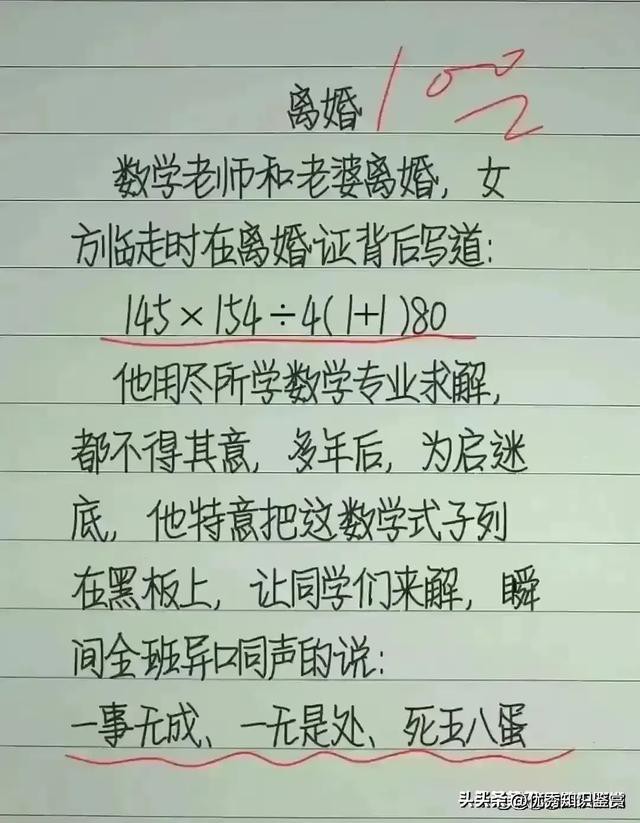 离婚 100
数学老师和老婆离婚，女
方临走时在离婚证背后写道：
145×154÷4(1+1)80
他用尽所学数学专业求解，
都不得其意，多年后，为启迷
底，他特意把这数学式子列
在黑板上，让同学们来解，瞬
间全班异口同声的说：
一事无成、一无是处、死王八蛋
头条 @优秀知识鉴赏